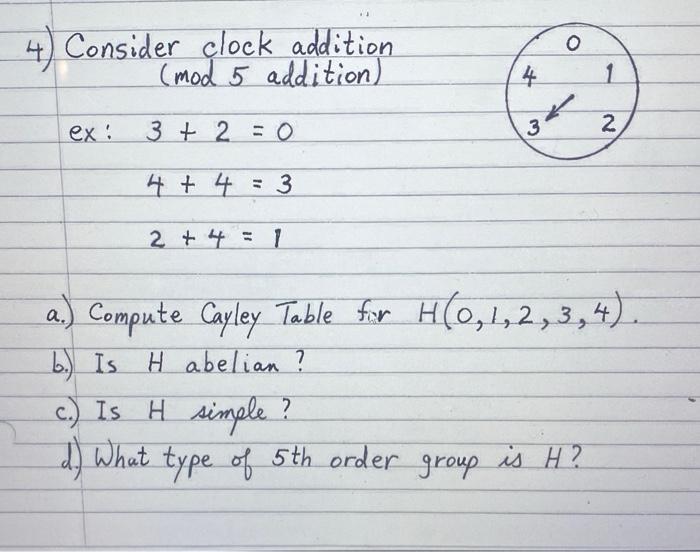 4) Consider clock addition
(mod 5 addition)
0
4 1
3 2
ex: 3 + 2 = 0
4 + 4 = 3
2 + 4 = 1
a.) Compute Cayley Table for H(0,1,2,3,4).
b.) Is H abelian?
c.) Is H simple?
d.) What type of 5th order group is H?